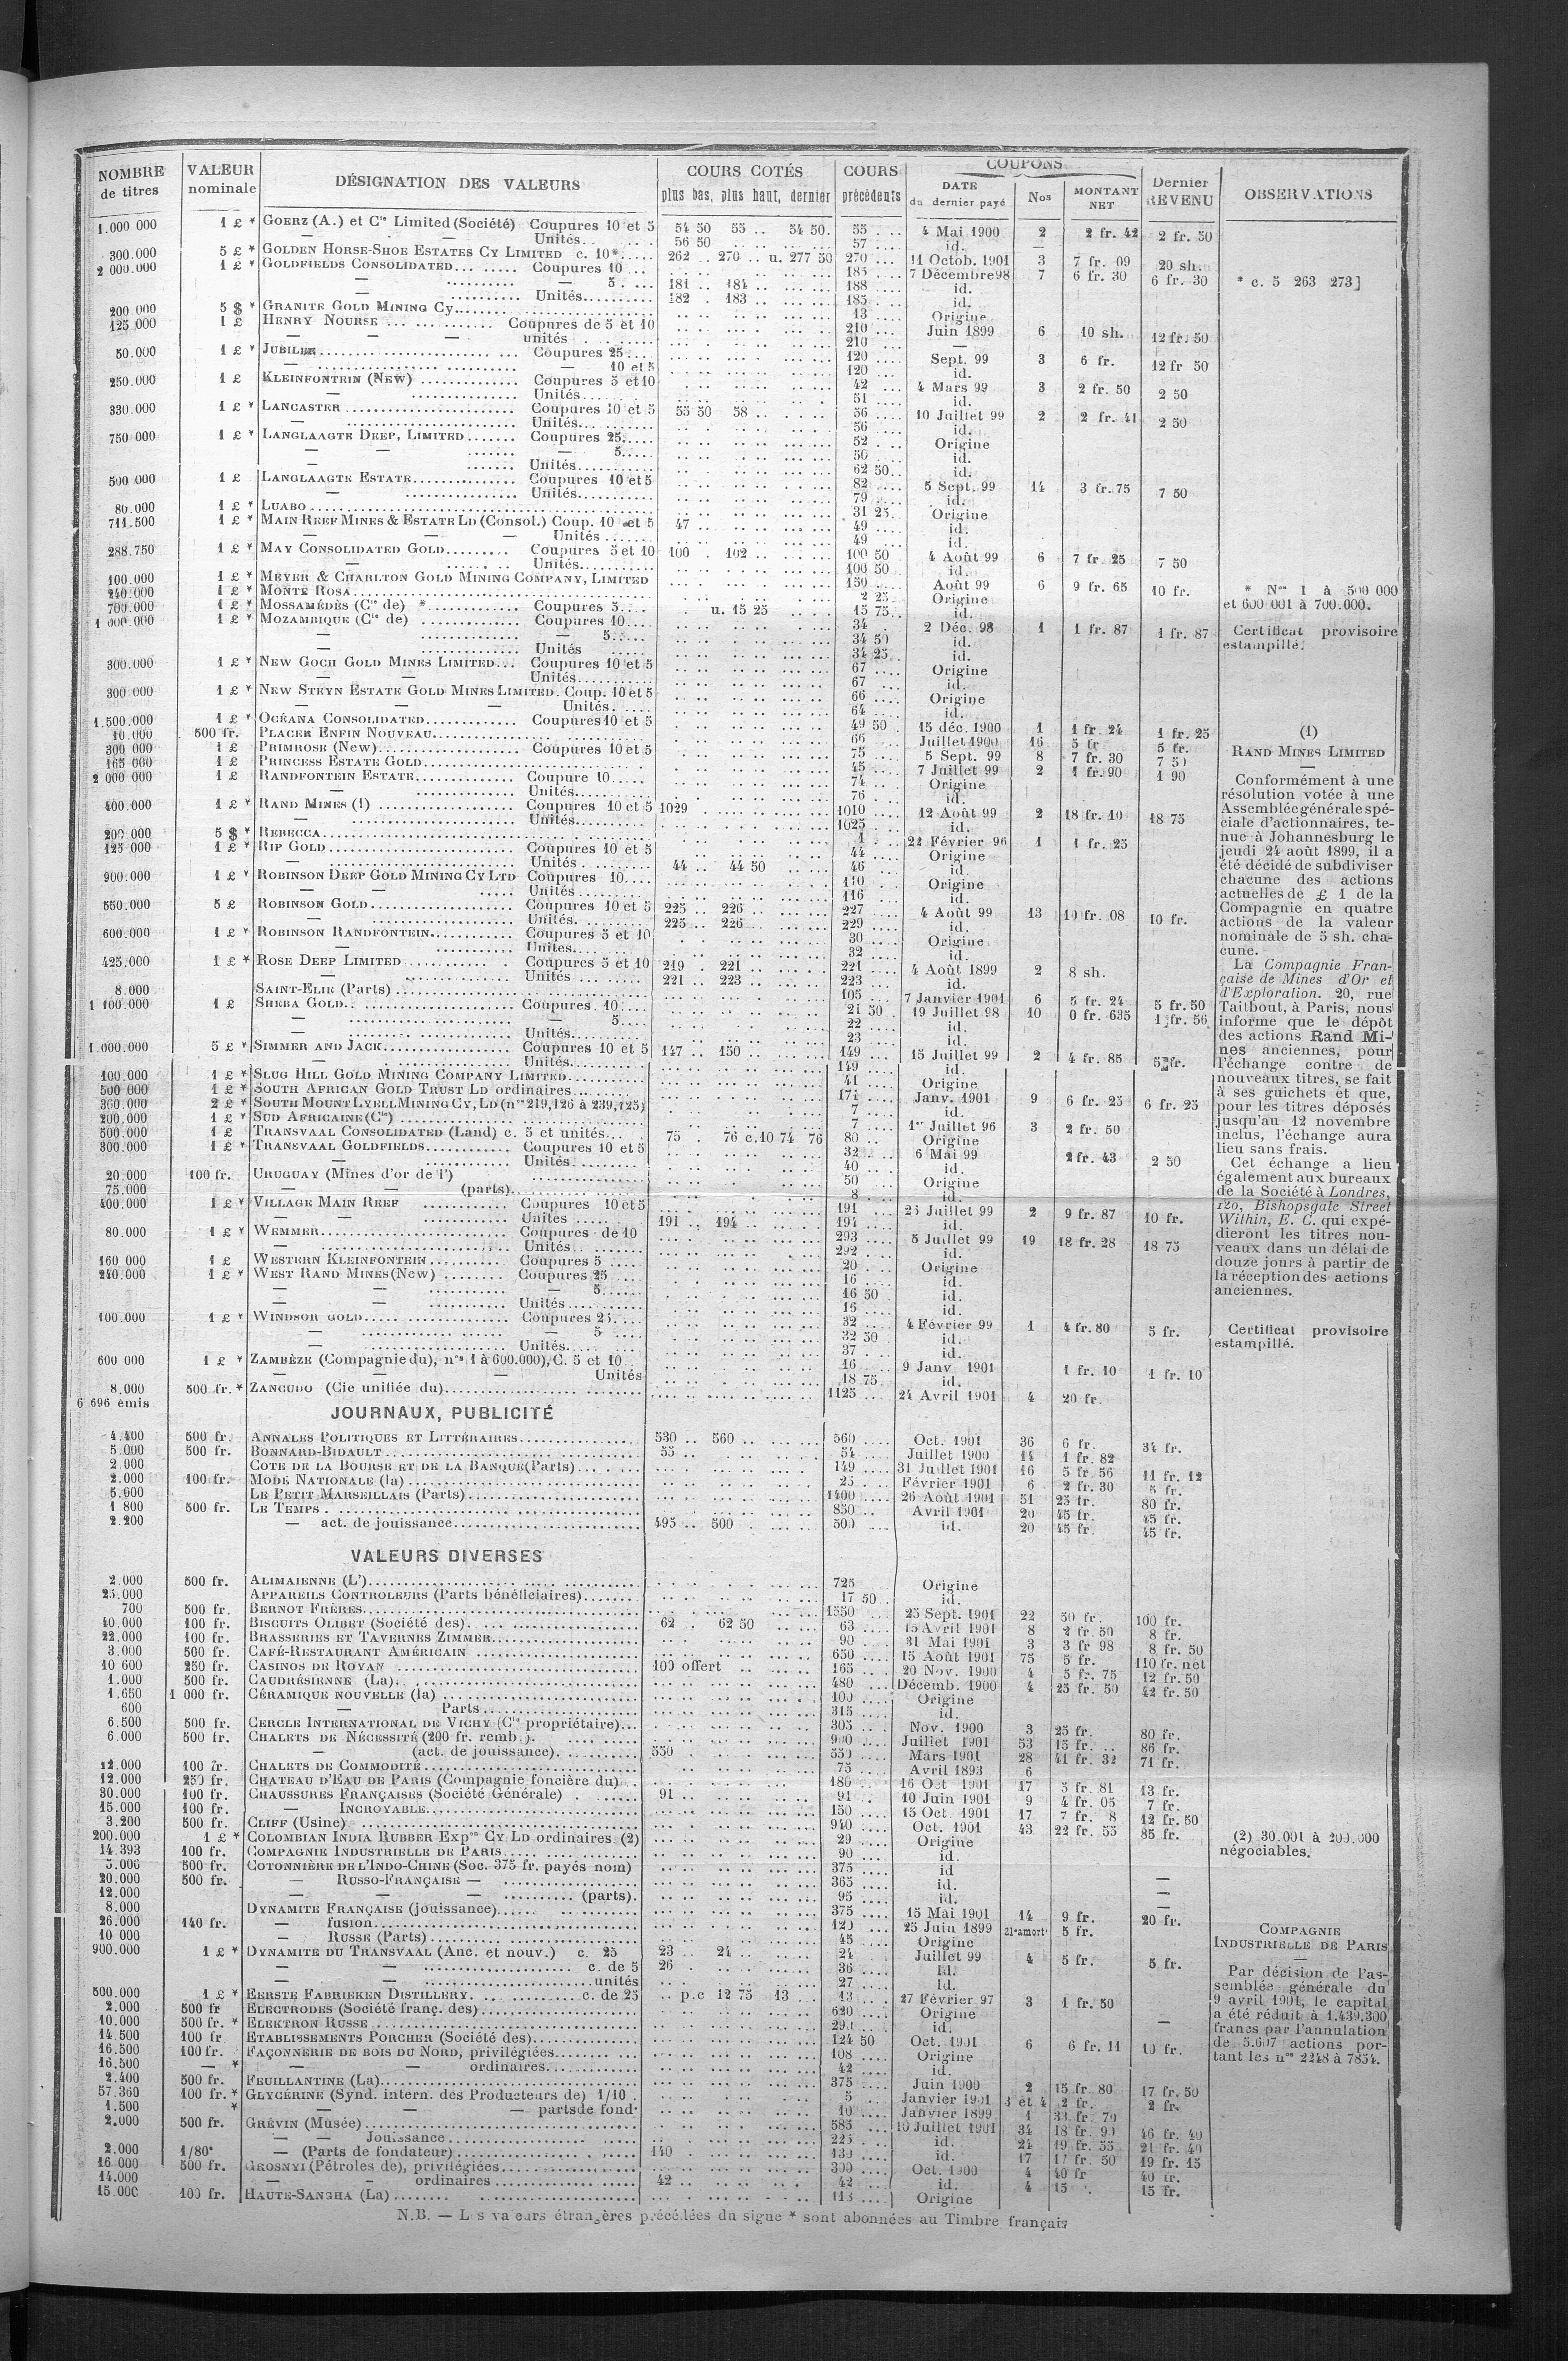 NOMBRE de titres | VALEUR nominale | DÉSIGNATION DES VALEURS | COURS COTÉS plus bas, plus haut, dernier | COURS précédents | COUPONS DATE du dernier payé | Nos | MONTANT NET | Dernier REVENU | OBSERVATIONS
1.000 000 1 £ * GOERZ (A.) et Cie Limited (Société) Coupures 10 et 5 54 50 55 .. 54 50. 55 .... 4 Mai 1900 2 2 fr. 42 2 fr. 50
— — Unités.. 56 50 57 ... id. —
300.000 5 £ * GOLDEN HORSE-SHOE ESTATES CY LIMITED c. 10*..... 262 .. 270 .. u. 277 50 270 ... 11 Octob. 1901 3 7 fr. 09 20 sh.
2 000.000 1 £ * GOLDFIELDS CONSOLIDATED... Coupures 10 ... 185 .... 7 Décembre 98 7 6 fr. 30 6 fr. 30 * c. 5 263 273]
— 5 .... 181 .. 184 .. 188 .... id.
— Unités.......... 182 . 183 .. 185 .... id.
200 000 5 $ * GRANITE GOLD MINING Cy........ 13 .... Origine
125 000 1 £ HENRY NOURSE ... Coupures de 5 et 10 210 .... Juin 1899 6 10 sh. 12 fr. 50
— — — unités 210 .... —
50.000 1 £ * JUBILEE........ Coupures 25.... 120 .... Sept. 99 3 6 fr. 12 fr 50
— — 10 et 5 120 .... id.
250.000 1 £ KLEINFONTEIN (NEW) ............. Coupures 5 et 10 42 ... 4 Mars 99 3 2 fr. 50 2 50
— Unités....... 51 .... id.
330.000 1 £ * LANCASTER ........ Coupures 10 et 5 55 50 58 .. 56 .... 10 Juillet 99 2 2 fr. 41 2 50
— Unités........ 56 .... id.
750 000 1 £ * LANGLAAGTE DEEP, LIMITED ....... Coupures 25..... 52 .... Origine
— — — 5..... 50 .... id.
— Unités........... 62 50.. id.
500 000 1 £ LANGLAAGTE ESTATE............... Coupures 10 et 5 82 .... 5 Sept. 99 14 3 fr. 75 7 50
— Unités........... 79 .... id.
80.000 1 £ * LUABO ........ 31 25.. Origine
711.500 1 £ * MAIN REEF MINES & ESTATE LD (Consol.) Coup. 10 et 5 47 .. 49 .... id.
— — — Unités ....... 49 .... id.
288.750 1 £ * MAY CONSOLIDATED GOLD......... Coupures 5 et 10 100 . 102 .. 100 50 4 Août 99 6 7 fr. 25 7 50
— Unités........... 100 50. id.
100.000 1 £ * MEYER & CHARLTON GOLD MINING COMPANY, LIMITED 150 .... Août 99 6 9 fr. 65 10 fr. * Nos 1 à 500 000
240.000 1 £ * MONTE ROSA........ 2 25.. Origine et 600 001 à 700.000.
700.000 1 £ * MOSSAMÉDÈS (Cie de) * ............ Coupures 5.... u. 15 25 15 75.. id.
1 000.000 1 £ * MOZAMBIQUE (Cie de) ............ Coupures 10.... 34 .... 2 Déc. 98 1 1 fr. 87 1 fr. 87 Certificat provisoire
— — 5..... 34 50 id. estampillé.
— Unités ..... 34 25.. id.
300.000 1 £ * NEW GOCH GOLD MINES LIMITED... Coupures 10 et 5 67 .... Origine
— — Unités........... 67 .... id.
300 000 1 £ * NEW STEYN ESTATE GOLD MINES LIMITED. Coup. 10 et 5 66 .... Origine
— — — Unités. .... 64 .... id.
1.500.000 1 £ * OCÉANA CONSOLIDATED............. Coupures 10 et 5 49 50 . 15 déc. 1900 1 1 fr. 24 1 fr. 25 (1)
10.000 500 fr. PLACER ENFIN NOUVEAU........ 66 ... Juillet 1900 16 5 fr 5 fr. RAND MINES LIMITED
300 000 1 £ PRIMROSE (New)........ Coupures 10 et 5 75 .... 5 Sept. 99 8 7 fr. 30 7 50
165 000 1 £ PRINCESS ESTATE GOLD........ 45 .... 7 Juillet 99 2 1 fr. 90 1 90
2 000 000 1 £ RANDFONTEIN ESTATE.............. Coupure 10..... 74 ... Origine
— Unités........... 76 ... id.
400.000 1 £ * RAND MINES (1) .................. Coupures 10 et 5 1029 1010 .... 12 Août 99 2 18 fr. 10 18 75
— Unités........... 1025 . .. id.
200 000 5 $ * REBECCA........ 1 . ... 22 Février 96 1 1 fr. 25
125 000 1 £ * RIP GOLD........ Coupures 10 et 5 44 .... Origine
— Unités ........ 44 .. 44 50 46 ... id.
900.000 1 £ * ROBINSON DEEP GOLD MINING CY LTD Coupures 10.... 110 .. Origine
— — Unités ........ 116 ... id.
550.000 5 £ ROBINSON GOLD................... Coupures 10 et 5 225 .. 226 .. 227 .... 4 Août 99 13 10 fr. 08 10 fr.
— Unités......... 225 .. 226 .. 229 .... id.
600.000 1 £ * ROBINSON RANDFONTEIN............ Coupures 5 et 10 30 .... Origine
— Unités........ 32 .... id.
425.000 1 £ * ROSE DEEP LIMITED ............ Coupures 5 et 10 219 . 221 .. 221 .... 4 Août 1899 2 8 sh.
— Unités ........ 221 .. 223 .. 223 .... id.
8.000 SAINT-ELIE (Parts) ........ 105 ... 7 Janvier 1901 6 5 fr. 24 5 fr. 50
1 100.000 1 £ SHEBA GOLD........ Coupures. 10.... 21 50 . 19 Juillet 98 10 0 fr. 635 1 fr. 56
— — 5.... 22 .... id.
— Unités.......... 23 .... id.
1.000.000 5 £ * SIMMER AND JACK................. Coupures 10 et 5 147 .. 150 .. 149 .... 15 Juillet 99 2 4 fr. 85 5 fr.
— Unités.......... 149 .... id.
100.000 1 £ * SLUG HILL GOLD MINING COMPANY LIMITED........... 41 .... Origine
500 000 1 £ * SOUTH AFRICAN GOLD TRUST LD ordinaires........ Janv. 1901 9 6 fr. 25 6 fr. 25
300.000 2 £ * SOUTH MOUNT LYELL MINING CY, LD (nos 219,126 à 239,125) 7 .... id.
200.000 1 £ * SUD AFRICAINE (Cie) ........ 7 .... 1er Juillet 96 3 2 fr. 50
500.000 1 £ TRANSVAAL CONSOLIDATED (Land) c. 5 et unités... 75 . 76 c.10 74 76 80 .. Origine
300.000 1 £ * TRANSVAAL GOLDFIELDS............ Coupures 10 et 5 32 .... 6 Mai 99 2 fr. 43 2 50
— — Unités......... 40 .... id.
20.000 100 fr. URUGUAY (Mines d'or de l') 50 .... Origine
75.000 — — (parts)........ 8 .... id.
400.000 1 £ * VILLAGE MAIN REEF ............ Coupures 10 et 5 191 .... 25 Juillet 99 2 9 fr. 87 10 fr.
— — Unités ..... 191 .. 194 .. 194 .... id.
80.000 1 £ * WEMMER........ Coupures de 10 293 .... 5 Juillet 99 19 18 fr. 28 18 75
— Unités. ........ 292 ... id.
160 000 1 £ WESTERN KLEINFONTEIN........... Coupures 5 .... 20 .... Origine
240.000 1 £ * WEST RAND MINES (New) ........ Coupures 25 .... 16 .... id.
— — — 5........ 16 50 id.
— — Unités........... 16 .... id.
100.000 1 £ * WINDSOR GOLD........ Coupures 25.... 32 .... 4 Février 99 1 4 fr. 80 5 fr. Certificat provisoire
— — 5 .... 32 50 id. estampillé.
— Unités....... 37 ... id.
600 000 1 £ * ZAMBÈZE (Compagnie du), nos 1 à 600.000), C. 5 et 10.. 16 .... 9 Janv 1901 1 fr. 10 1 fr. 10
— — — Unités 18 75. id.
8.000 500 fr. * ZANCUDO (Cie unifiée du)........ 1125 .... 24 Avril 1901 4 20 fr.
6 696 émis
Conformément à une
résolution votée à une
Assemblée générale spé-
ciale d'actionnaires, te-
nue à Johannesburg le
jeudi 24 août 1899, il a
été décidé de subdiviser
chacune des actions
actuelles de £ 1 de la
Compagnie en quatre
actions de la valeur
nominale de 5 sh. cha-
cune.
La Compagnie Fran-
çaise de Mines d'Or et
d'Exploration. 20, rue
Taitbout, à Paris, nous
informe que le dépôt
des actions Rand Mi-
nes anciennes, pour
l'échange contre de
nouveaux titres, se fait
à ses guichets et que,
pour les titres déposés
jusqu'au 12 novembre
inclus, l'échange aura
lieu sans frais.
Cet échange a lieu
également aux bureaux
de la Société à Londres,
120, Bishopsgate Street
Wilhin, E. C. qui expé-
dieront les titres nou-
veaux dans un délai de
douze jours à partir de
la réception des actions
anciennes.
JOURNAUX, PUBLICITÉ
4.400 500 fr. ANNALES POLITIQUES ET LITTÉRAIRES................ 530 .. 560 .. 560 .... Oct. 1901 36 6 fr. 34 fr.
5.000 500 fr. BONNARD-BIDAULT ........ 55 .. 54 .... Juillet 1900 14 1 fr. 82
2.000 COTE DE LA BOURSE ET DE LA BANQUE (Parts)........ 149 .... 31 Juillet 1901 16 5 fr. 56 11 fr. 12
2.000 100 fr. MODE NATIONALE (la) ........ 25 .... Février 1901 6 2 fr. 30 5 fr.
5.000 LE PETIT MARSEILLAIS (Parts)........ 1400 .... 26 Août 1901 51 25 fr. 80 fr.
1 800 500 fr. LE TEMPS ........ 850 .. Avril 1901 20 45 fr. 45 fr.
2.200 — act. de jouissance........ 495 .. 500 500 .... id. 20 45 fr. 45 fr.
VALEURS DIVERSES
2.000 500 fr. ALIMAIENNE (L')........ 725 Origine
25.000 APPAREILS CONTROLEURS (Parts bénéficiaires)....... 17 50 .. id.
700 500 fr. BERNOT FRÈRES........ 1550 .. 25 Sept. 1901 22 50 fr. 100 fr.
40.000 100 fr. BISCUITS OLIBET (Société des)........ 62 .. 62 50 63 .... 15 Avril 1901 8 2 fr. 50 8 fr.
22.000 100 fr. BRASSERIES ET TAVERNES ZIMMER........ 90 ... 31 Mai 1901 3 3 fr 98 8 fr. 50
3.000 500 fr. CAFÉ-RESTAURANT AMÉRICAIN ........ 650 .... 15 Août 1901 75 5 fr. 110 fr. net
10 600 250 fr. CASINOS DE ROYAN ........ 100 offert 165 .... 20 Nov. 1900 4 5 fr. 75 12 fr. 50
1.000 500 fr. CAUDRÉSIENNE (La)........ 480 .... Décemb. 1900 4 25 fr. 50 42 fr. 50
1.650 1 000 fr. CÉRAMIQUE NOUVELLE (la) ........ 100 .... Origine
600 — Parts ........ 315 .... id.
6.500 500 fr. CERCLE INTERNATIONAL DE VICHY (Cie propriétaire)... 305 .. . Nov. 1900 3 25 fr. 80 fr.
6.000 500 fr. CHALETS DE NÉCESSITÉ (200 fr. remb.). 900 .... Juillet 1901 53 15 fr. .. 86 fr.
— (act. de jouissance). .......... 550 . Mars 1901 28 41 fr. 32 71 fr.
12.000 100 fr. CHALETS DE COMMODITÉ........ 75 .... Avril 1893 6
12.000 250 fr. CHATEAU D'EAU DE PARIS (Compagnie foncière du) . 180 .. 16 Oct 1901 17 5 fr. 81 13 fr.
30.000 100 fr. CHAUSSURES FRANÇAISES (Société Générale) . ...... 91 .. 91 .. 10 Juin 1901 9 4 fr. 05 7 fr.
15.000 100 fr. — INCROYABLE........ 150 .... 15 Oct. 1901 17 12 fr. 50
3.200 500 fr. CLIFF (Usine) ........ 940 .... Oct. 1901 43 22 fr. 55 85 fr.
200.000 1 £ * COLOMBIAN INDIA RUBBER Expon CY LD ordinaires (2) 29 .... Origine (2) 30.001 à 200.000
14.393 100 fr. COMPAGNIE INDUSTRIELLE DE PARIS........ 90 .... id. négociables.
500 fr. COTONNIÈRE DE L'INDO-CHINE (Soc. 375 fr. payés nom) 375 .... id
20.000 500 fr. — RUSSO-FRANÇAISE — ........ 365 .... id. —
12.000 — — — .......... (parts). 95 .... id. —
8.000 DYNAMITE FRANÇAISE (jouissance)........ 375 .... 15 Mai 1901 14 9 fr. 20 fr.
26.000 140 fr. — fusion........ 120 ... 25 Juin 1899 21e amort. 5 fr.
10 000 — RUSSE (Parts) ........ 45 .... Origine
900.000 1 £ * DYNAMITE DU TRANSVAAL (Anc. et nouv.) c. 25 23 .. 24 .. 24 .... Juillet 99 4 5 fr. 5 fr.
— — c. de 5 26 . 36 .... Id.
— — unités 27 .... id.
500.000 1 £ * EERSTE FABRIEKEN DISTILLERY........ c. de 25 .. p.c 12 75 13 13 ... 27 Février 97 3 1 fr. 50
2.000 500 fr ELECTRODES (Société franç. des) ........ 620 .... Origine
10.000 500 fr. * ELEKTRON RUSSE ........ id. —
14.500 100 fr ETABLISSEMENTS PORCHER (Société des).............. 124 50 Oct. 1901 6 6 fr. 11 10 fr.
16.500 100 fr. FAÇONNERIE DE BOIS DU NORD, privilégiées........ 108 .... Origine
16.500 — * — — ordinaires............. 42 .... id.
2.400 500 fr. FEUILLANTINE (La)........ 375 .... Juin 1900 2 15 fr. 80 17 fr. 50
57.360 100 fr. * GLYCÉRINE (Synd. intern. des Producteurs de) 1/10 . 5 .... Janvier 1901 3 et 4 2 fr. 2 fr.
1.500 * — — — parts de fond. 10 .... Janvier 1899 1 33 fr. 70
2.000 500 fr. GRÉVIN (Musée) ........ 585 10 Juillet 1901 34 18 fr. 90 46 fr. 40
— — Jouissance........ 225 ... id. 24 19 fr. 55 21 fr. 40
2.000 1/80e — (Parts de fondateur)........ 140 130 .... id. 17 17 fr. 50 19 fr. 15
16 000 500 fr. GROSNYI (Pétroles de), privilégiées........ 300 .... Oct. 1900 4 40 fr 40 fr.
14.000 — — ordinaires ........ 42 .. 42 .. id. 4 15 . 15 fr.
15.000 100 fr. HAUTE-SANGHA (La) ........ 113 .... Origine
COMPAGNIE
INDUSTRIELLE DE PARIS
—
Par décision de l'as-
semblée générale du
9 avril 1901, le capital
a été réduit à 1.439.300
francs par l'annulation
de 5.607 actions por-
tant les nos 2248 à 7854.
N.B. — Les valeurs étrangères précédées du signe * sont abonnées au Timbre français